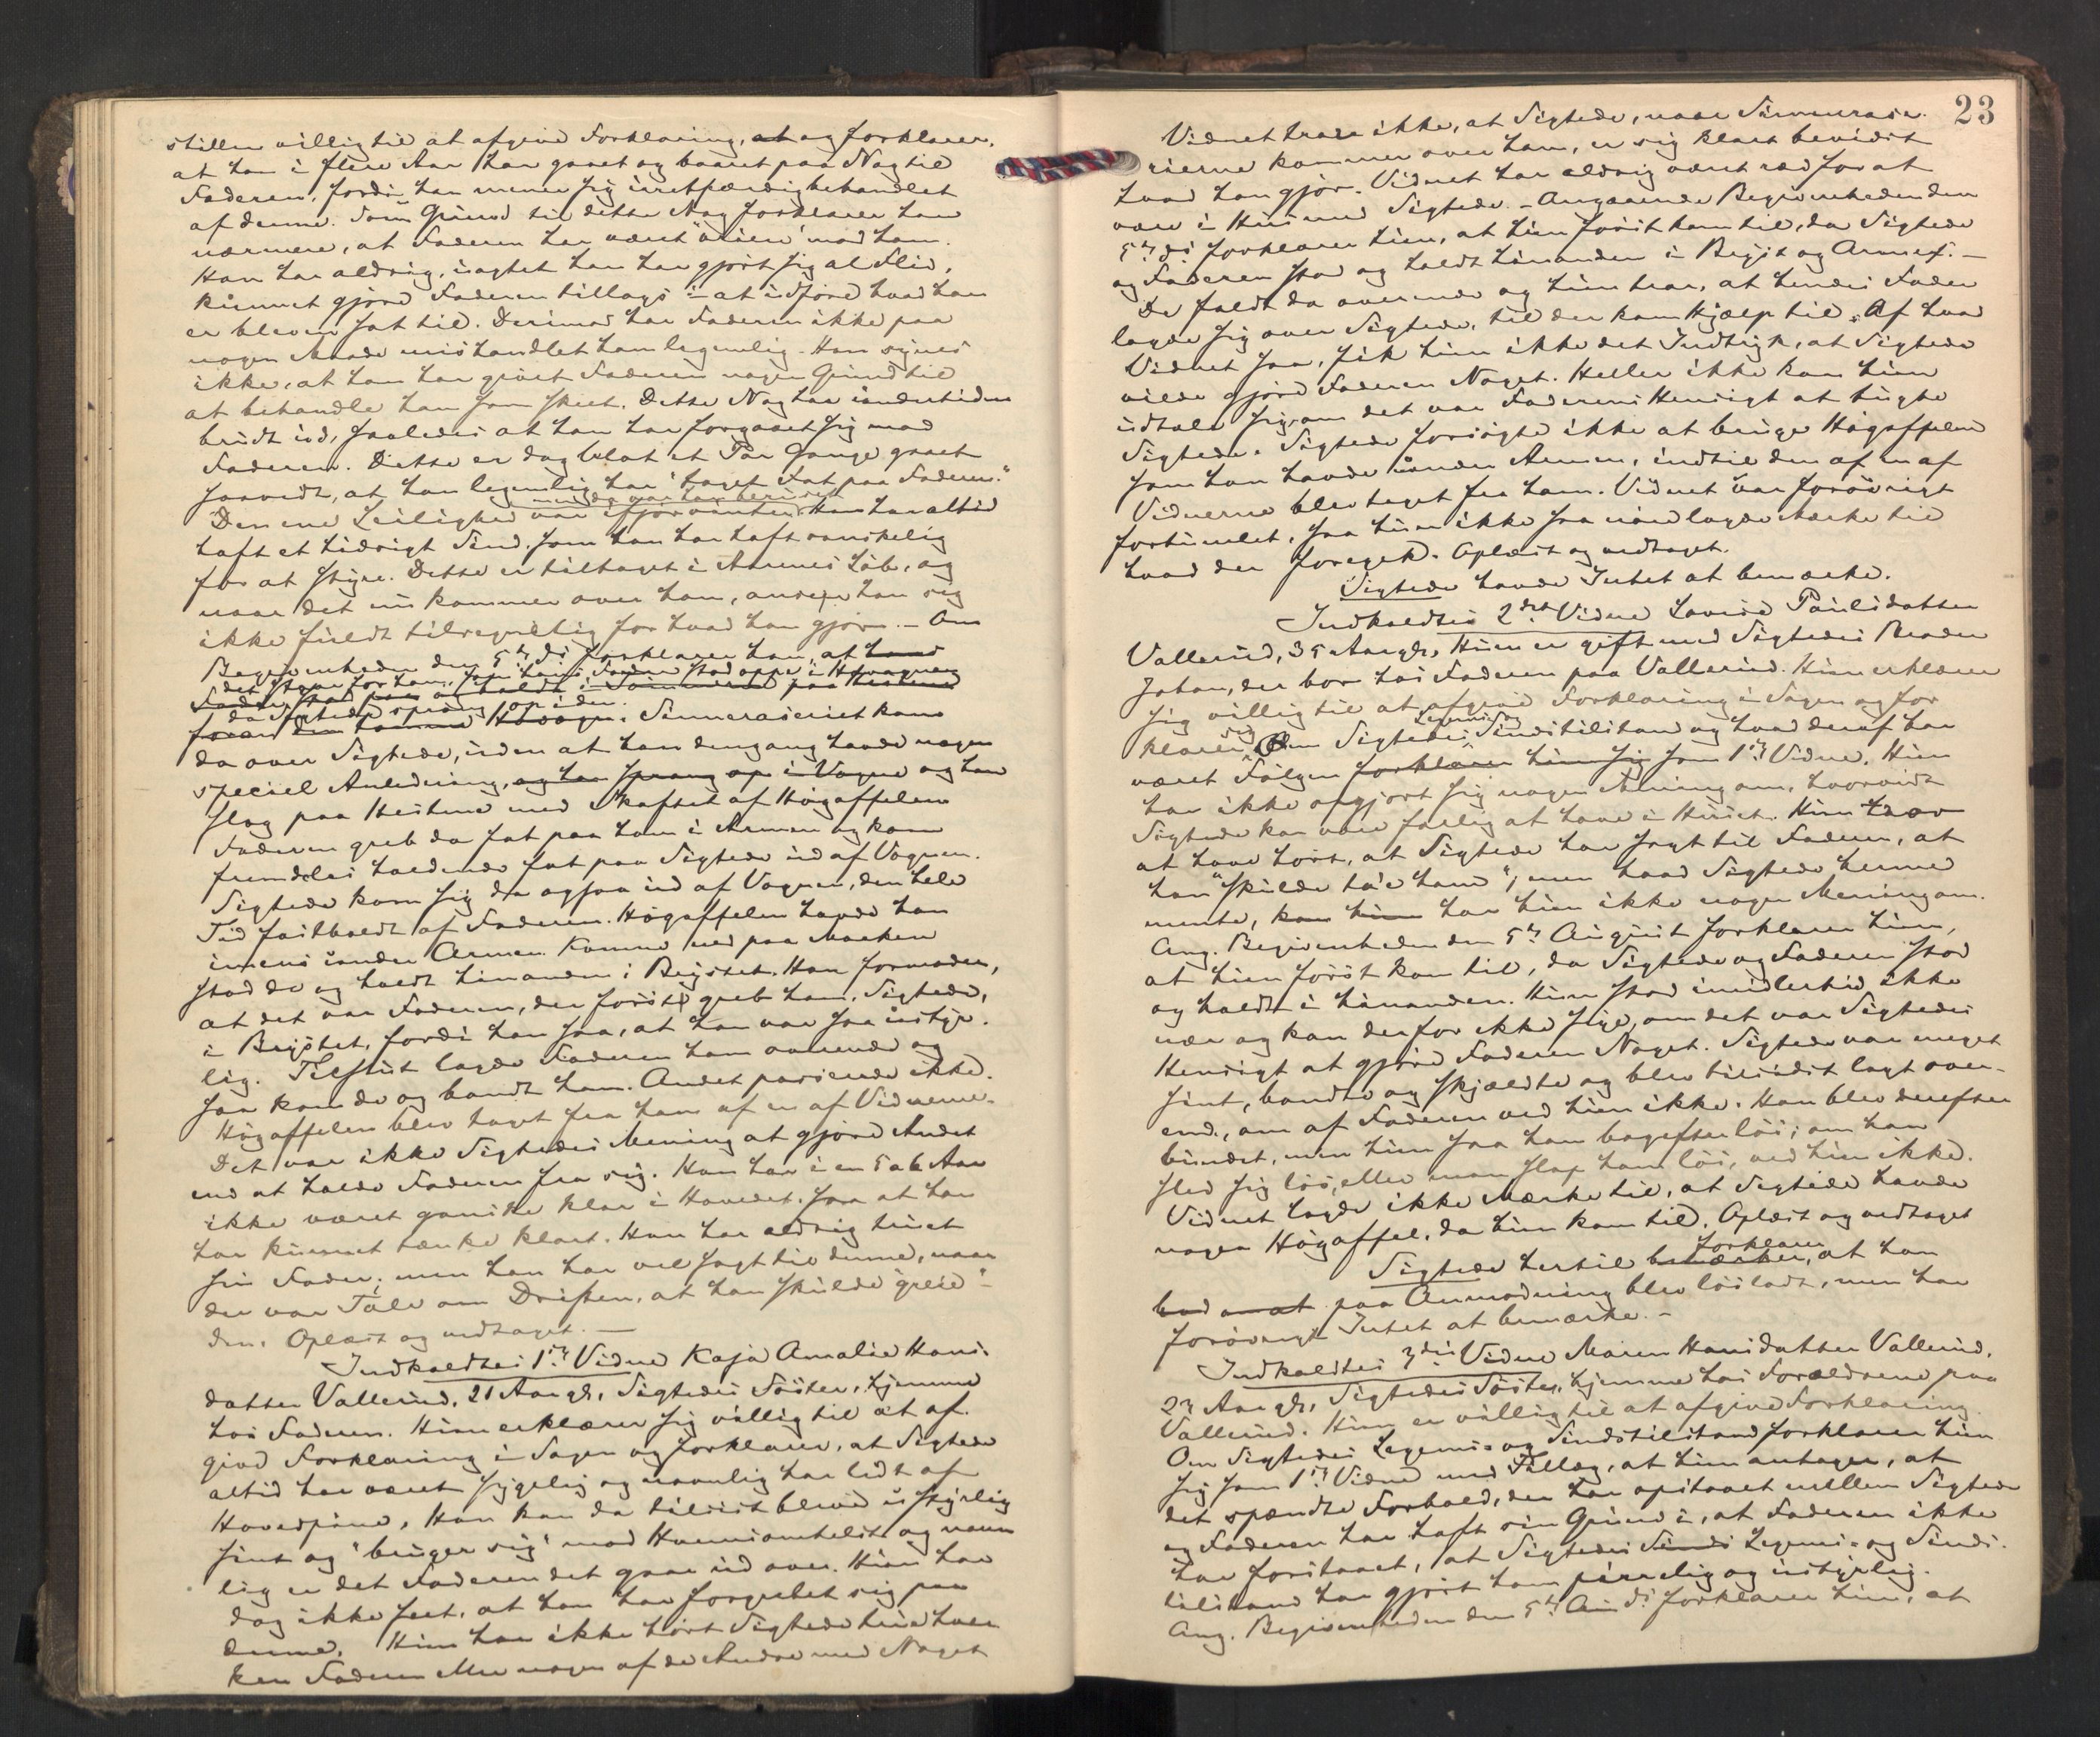 stillen villig til at afgive Forklaring, at og forklarer,
at han i flere Aar har gaaet og baaret paa Nag til
Faderen, fordi han mener sig uretfærdig behandlet
af denne. Som Grund til dette Nag forklarer han
nærmere, at Faderen har været "vrien" mod ham.
Han har aldrig, uagtet han har gjort sig al Flid,
kunnet gjøre Faderen tillags i at udføre hvad han
er bleven sat til. Derimod har Faderen ikke paa
nogen Maade mishandlet ham legemlig. Han synes
ikke, at han har givet Faderen nogen Grund til
at behandle ham som skeet. Dette Nag har undertiden
brudt ud, saaledes at han har forgaaet sig mod
Faderen. Dette er dog blot et Par Gange gaaet
saavidt, at han legemlig har "taget Fat paa Faderen."
men da var han beruset
Den ene Leilighed var ifjor vinter. Han har altid
haft et hidsigt Sind, som han har haft vanskelig
for at styre. Dette er tiltaget i Aarenes Løb, og
naar det nu kommer over ham, anser han sig
ikke fuldt tilregnelig for hvad han gjør. – Om
Begivenheden den 5te ds forklarer han, at hans
det staar for ham, som hans Fader stod oppe i Høvognen
Fader stod paa og holdt i Tømmerne paa Hestene
da Sigtede sprang op i den.
foran den tomme Høvogn. Sinneraseriet kom
da over Sigtede, uden at han dengang havde nogen
speciel Anledning, og han sprang op i Vogne og han
slog paa Hestene med Skaftet af Høgaffelen
Faderen greb da fat paa ham i Armen og kom
fremdeles holdende fat paa Sigtede ud af Vognen.
Sigtede kom sig da ogsaa ud af Vognen, den hele
Tid fastholdt af Faderen. Høgaffelen havde han
imens under Armen. Komne ned paa Marken
stod de og holdt hinanden i Brystet. Han formoder,
at det var Faderen, der først greb ham, Sigtede,
i Brystet, fordi han saa, at han var saa ustyr-
lig. Tilslut lagde Faderen ham overende og
saa kom de og bandt ham. Andet passerede ikke.
Høgaffelen blev taget fra ham af en af Vidnerne.
Det var ikke Sigtedes Mening at gjøre Andet
end at holde Faderen fra sig. Han har i en 5 a 6 Aar
ikke været ganske klar i Hovedet, saa at han
har kunnet tænke klart. Han har aldrig truet
sin Fader; men han har vel sagt til denne, naar
der var Tale om Driften, at han skulde "greie"
den. Oplæst og vedtaget. —
Indkaldtes 1ste Vidne Kaja Amalie Hans-
datter Vallerud, 21 Aar gl., Sigtedes Søster, hjemme
hos Faderen. Hun erklærer sig villig til at af-
give Forklaring i Sagen og forklarer, at Sigtede
altid har været sygelig og navnlig har lidt af
Hovedpine. Han kan da tilsidst blive ustyrlig
sint og "bruger sig" mod Hvemsomhelst og navn
lig er det Faderen det gaar ud over. Hun har
dog ikke seet, at han har forgrebet sig paa
denne. Hun har ikke hørt Sigtede true hver
ken Faderen eller nogen af de Andre med Noget
23
Vidnet troer ikke, at Sigtede, naar Sinnerase-
rierne kommer over ham, er sig klart bevidst
hvad han gjør. Vidnet har aldrig været ræd for at
være i Hus med Sigtede. – Angaaende Begivenheden den
5te ds forklarer hun, at hun først kom til, da Sigtede
og Faderen stod og holdt hinanden i Bryst og Arme. –
De faldt da overende og hun tror, at hendes Fader
lagde sig over Sigtede, til der kom Hjælp til. Af hvad
Vidnet saa, fik hun ikke det Indtryk, at Sigtede
vilde gjøre Faderen Noget. Heller ikke kan hun
udtale sig, om det var Faderens Hensigt at tugte
Sigtede. Sigtede forsøgte ikke at bruge Høgaffelen
som han havde under Armen, indtil den af en af
Vidnerne blev taget fra ham. Vidnet var forøvrigt
fortumlet, saa hun ikke saa nøie lagde Mærke til
hvad der foregik. Oplæst og vedtaget.
Sigtede havde Intet at bemærke.
Indkaldtes 2det Vidne Lovise Paulsdatter
Vallerud, 35 Aar gl., Hun er gift med Sigtedes Broder
Johan, der bor hos Faderen paa Vallerud. Hun erklærer
sig villig til at afgive Forklaring i Sagen og for
Legems og
klarer sig Om Sigtedes Sindstilstand og hvad deraf har
været Følgen forklarer hun sig som 1ste Vidne. Hun
har ikke opgjort sig nogen Mening om, hvorvidt
Sigtede kan være farlig at have i Huset. Hun tror
at have hørt, at Sigtede har sagt til Faderen, at
han "skulde ta'e ham", men hvad Sigtede hermed
mente, kan hun har hun ikke nogen Mening om.
Ang. Begivenheden den 5te August forklarer hun,
at hun først kom til, da Sigtede og Faderen stod
og holdt i hinanden. Hun stod imidlertid ikke
nær og kan derfor ikke sige, om det var Sigtedes
Hensigt at gjøre Faderen Noget. Sigtede var meget
sint, bandte og skjældte og blev tilsidst lagt over-
ende, om af Faderen ved hun ikke. Han blev derefter
bundet, men hun saa ham bagefter løs; om han
sled sig løs, eller man slap ham løs, ved hun ikke.
Vidnet lagde ikke Mærke til, at Sigtede havde
nogen Høgaffel, da hun kom til. Oplæst og vedtaget
forklarer
Sigtede hertil bemærker, at han
bad om at paa Anmodning blev løsladt, men har
forøvrigt Intet at bemærke. –
Indkaldtes 3die Vidne Maren Hansdatter Vallerud,
23 Aar gl., Sigtedes Søster, hjemme hos Forældrene paa
Vallerud. Hun er villig til at afgive Forklaring.
Om Sigtedes Legems- og Sindstilstand forklarer hun
sig som 1ste Vidne med Tillæg, at hun antager, at
det spændte Forhold, der har opstaaet mellem Sigtede
og Faderen har haft sin Grund i, at Faderen ikke
har forstaaet, at Sigtedes Sinds Legems- og Sinds-
tilstand har gjort ham pirrelig og ustyrlig.
Ang. Begivenheden den 5te Au ds forklarer hun, at